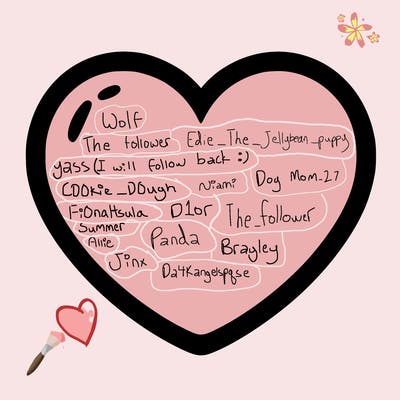 Wolf
The follower Edie_The_Jellybean_puppy
yass (I will follow back :)
COOkie_DOugh Niami Dog Mom_27
FiOnaHsula D1or The_follower
Summer
Allie Panda Brayley
Jinx
Da4Kangelspqse